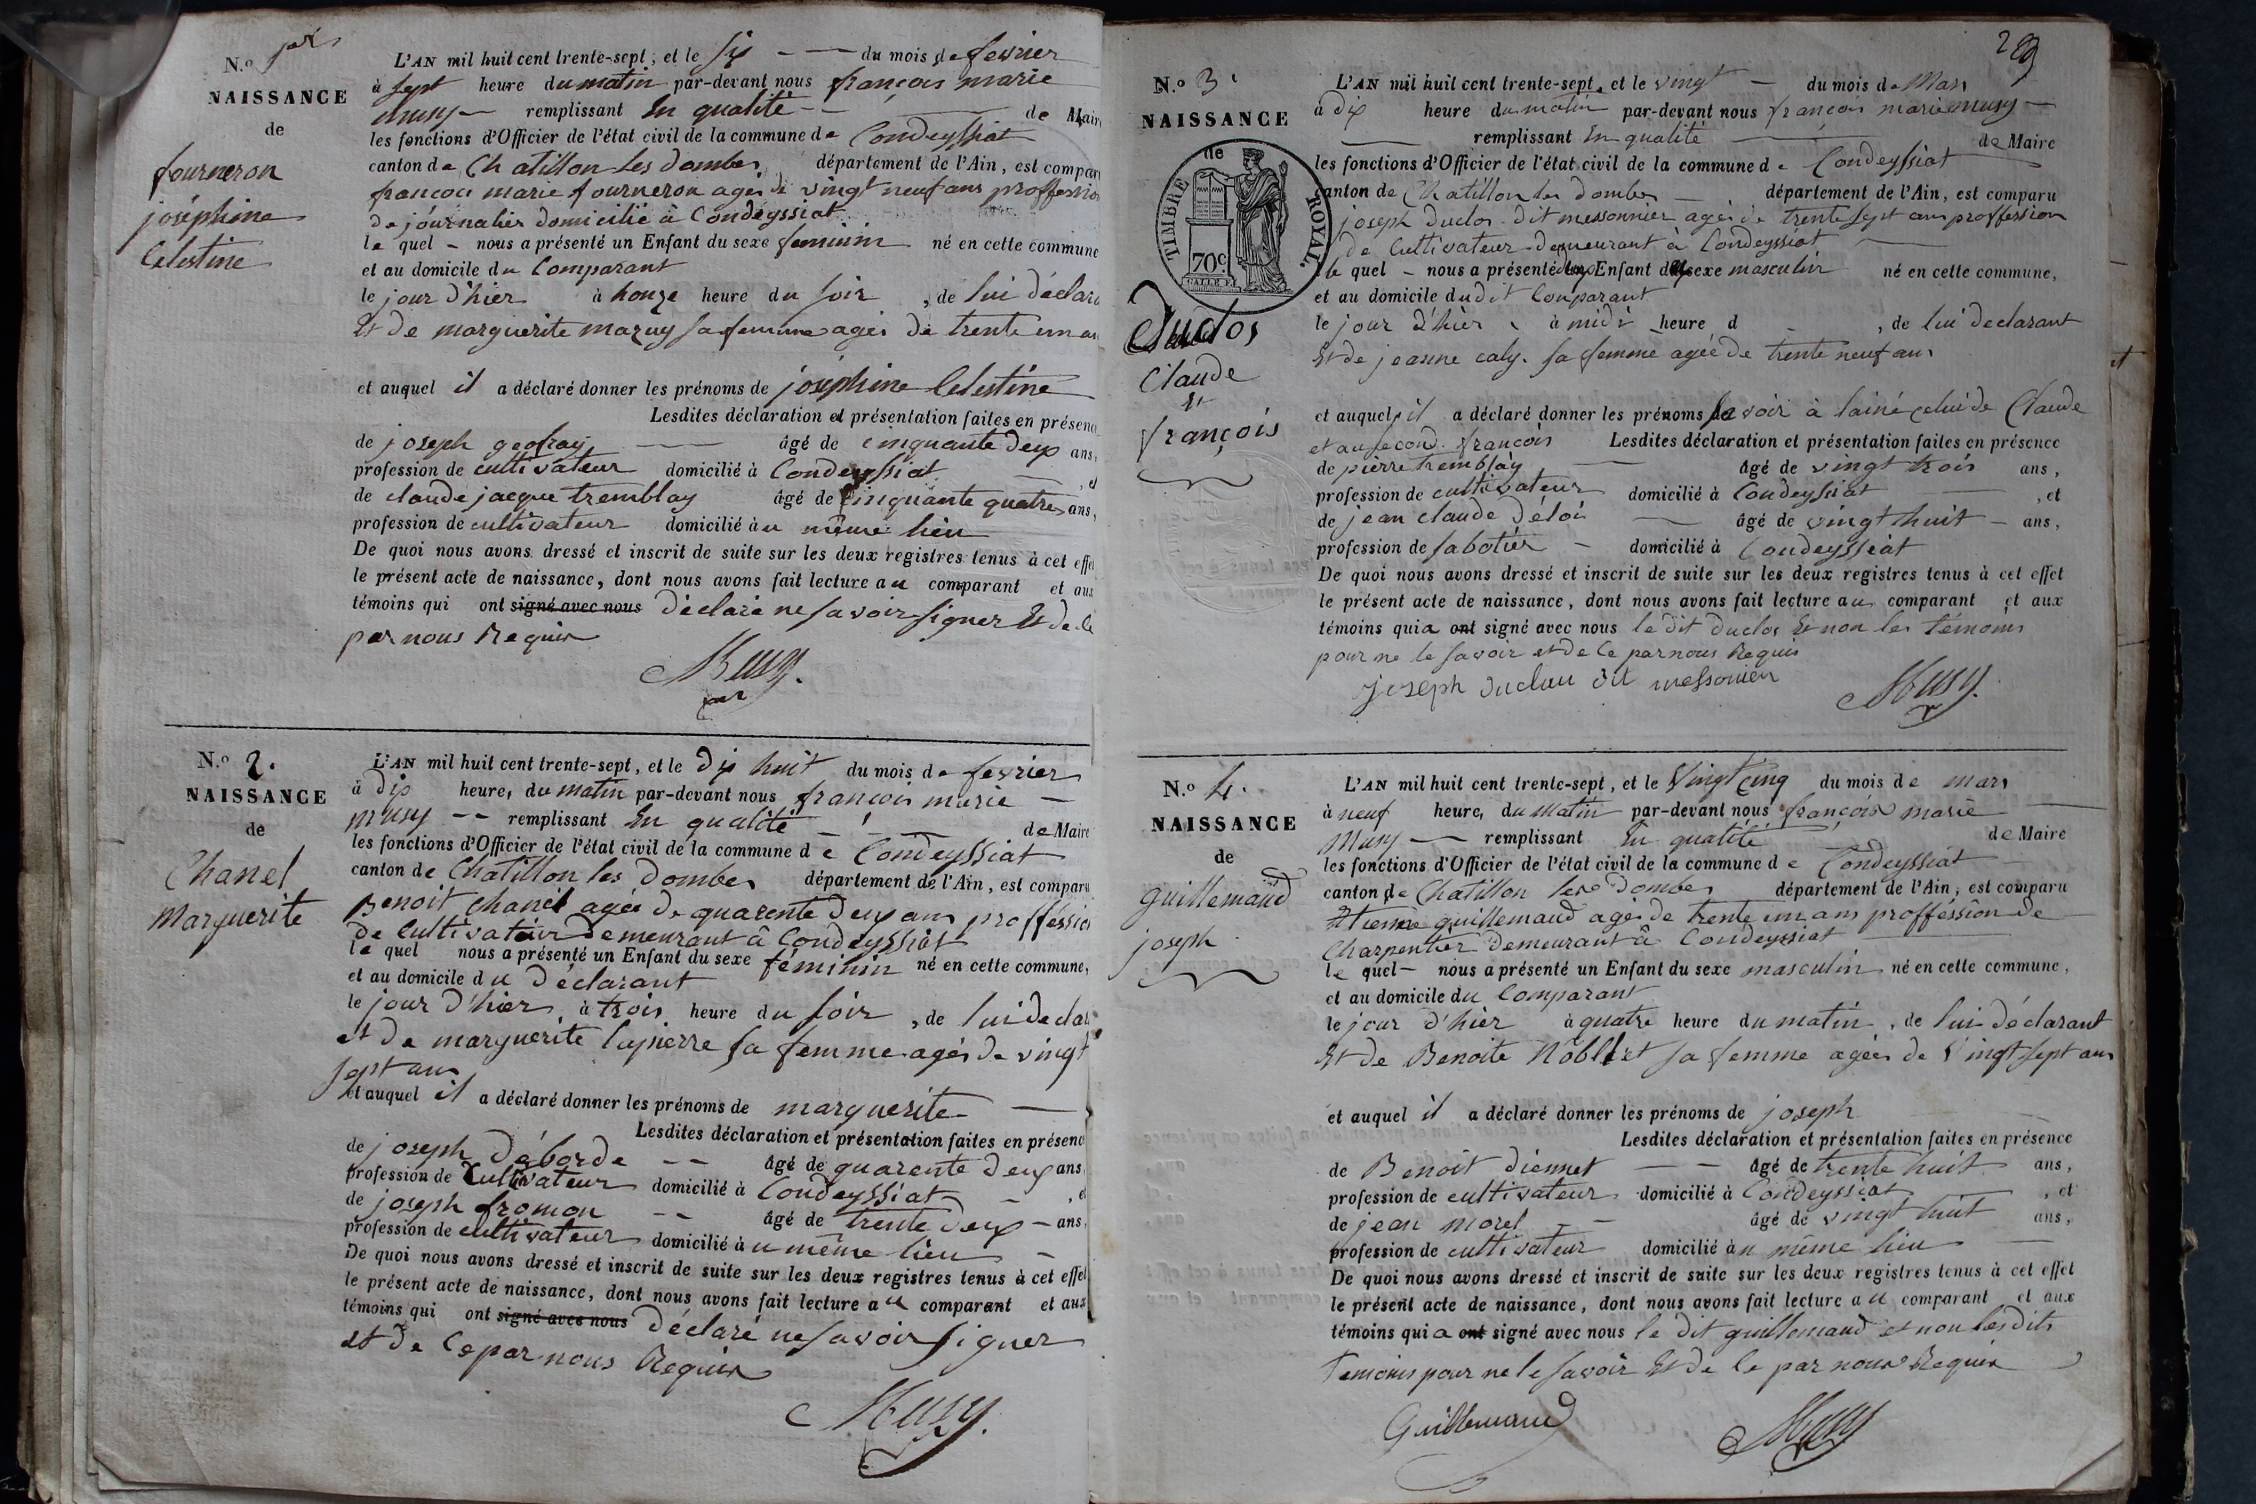 N.o 1er
NAISSANCE
de
fourneron
joséphine
Celestine
L'AN mil huit cent trente-sept, et le six du mois de fevrier
à sept heure du matin par-devant nous françois marie
musy remplissant En qualité de Maire
les fonctions d'Officier de l'état civil de la commune de Condeyssiat
canton de Chatillon les dombes, département de l'Ain, est compar
francois marie fourneron agés de vingt neuf ans proffession
de journalier domicilié à Condeyssiat
le quel nous a présenté un Enfant du sexe feminin né en cette commune
et au domicile du Comparant
le jour d'hier à honze heure du soir, de lui déclara
Et de marguerite mazuy sa femme agés de trente un an
et auquel il a déclaré donner les prénoms de joséphine Celestine
Lesdites déclaration et présentation faites en présenc
de joseph geofray âgé de cinquante deux ans,
profession de cultivateur domicilié à Condeyssiat, et
de claude jacque tremblay âgé de cinquante quatres ans,
profession de cultivateur domicilié àu même lieu
De quoi nous avons dressé et inscrit de suite sur les deux registres tenus à cet effet
le présent acte de naissance, dont nous avons fait lecture au comparant et aux
témoins qui ont signé avec nous déclaré ne savoir signer Et de ce
par nous Requis
Musy
N.o 2.
NAISSANCE
de
Chanel
Marguerite
L'AN mil huit cent trente-sept, et le dix huit du mois de fevrier
à dix heure, du matin par-devant nous françois marie
musy remplissant En qualité de Maire
les fonctions d'Officier de l'état civil de la commune de Condeyssiat
canton de Chatillon les Dombes département de l'Ain, est comparu
Benoit Chanel agés de quarente deux ans proffession
de Cultivateur demeurant â Condeyssiat
le quel nous a présenté un Enfant du sexe féminin né en cette commune,
et au domicile du déclarant
le jour d'hier à trois heure du soir, de lui declar
et de marguerite lapierre sa femme agés de vingt
sept ans
et auquel il a déclaré donner les prénoms de marguerite
Lesdites déclaration et présentation faites en présenc
de joseph déborde âgé de quarente deux ans
profession de Cultivateur domicilié à Condeyssiat, et
de joseph fromon âgé de trente deux ans,
profession de cultivateur domicilié àu même lieu
De quoi nous avons dressé et inscrit de suite sur les deux registres tenus à cet effet
le présent acte de naissance, dont nous avons fait lecture au comparant et aux
témoins qui ont signé avec nous déclaré ne savoir signer
et de Ce par nous Requis
Musy
N.o 3
NAISSANCE
de
TIMBRE ROYAL.
70c
Duclos
Claude
Et
françois
L'AN mil huit cent trente-sept, et le vingt du mois de Mars
à dix heure du matin par-devant nous françois marie musy
remplissant En qualité de Maire
les fonctions d'Officier de l'état civil de la commune de Condeyssiat
canton de Chatillon les dombes département de l'Ain, est comparu
joseph duclos dit messonnier agés de trente sept ans proffession
de Cultivateur demeurant à Condeyssiat
le quel nous a présenté deux Enfant du sexe masculin né en cette commune,
et au domicile dudit Conparant
le jour d'hier à midi heure d, de lui declarant
Et de jeanne caly sa femme agée de trente neuf ans
et auquel il a déclaré donner les prénoms savoir à lainé celui de Claude
et au second françois Lesdites déclaration et présentation faites en présence
de pierre tremblay âgé de vingt trois ans,
profession de cultivateur domicilié à Condeyssiat, et
de jean claude déloi âgé de vingt huit ans,
profession de sabotier domicilié à Condeyssiat
De quoi nous avons dressé et inscrit de suite sur les deux registres tenus à cet effet
le présent acte de naissance, dont nous avons fait lecture au comparant et aux
témoins qui a ont signé avec nous le dit duclos Et non les témoins
pour ne le savoir et de Ce par nous Requis
joseph duclau dit messonier
Musy
N.o 4.
NAISSANCE
de
guillemaud
joseph
L'AN mil huit cent trente-sept, et le Vingt Cinq du mois de mars
à neuf heure, du matin par-devant nous françois marie
Musy remplissant En qualité de Maire
les fonctions d'Officier de l'état civil de la commune de Condeyssiat
canton de Chatillon les Dombes département de l'Ain, est comparu
Etienne guillemaud agés de trente un ans proffession de
Charpentier demeurant â Condeyssiat
le quel nous a présenté un Enfant du sexe masculin né en cette commune,
et au domicile du Comparant
le jour d'hier à quatre heure du matin, de lui déclarant
Et de Benoite Noblet sa femme agées de Vingt sept ans
et auquel il a déclaré donner les prénoms de joseph
Lesdites déclaration et présentation faites en présence
de Benoit diennet âgé de trente huit ans,
profession de cultivateur domicilié à Condeyssiat, et
de jean morel âgé de vingt huit ans,
profession de cultivateur domicilié àu même lieu
De quoi nous avons dressé et inscrit de suite sur les deux registres tenus à cet effet
le présent acte de naissance, dont nous avons fait lecture au comparant et aux
témoins qui a ont signé avec nous le dit guillemaud et non lesdits
Temoins pour ne le savoir Et de Ce par nous Requis
Guillemaud
Musy